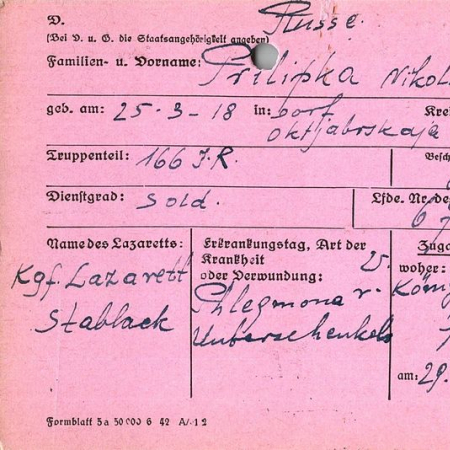 V. Russe.
(Bei V. u. G. die Staatsangehörigkeit angeben)
Familien- u. Vorname: Prilipka Nikol
geb. am: 25-3-18 in: Dorf Kre
oktjabrskaja
Truppenteil: 166 J.R. Besch
Dienstgrad: Sold. Lfde. Nr. de
6
Name des Lazaretts: Erkrankungstag, Art der Krankheit oder Verwundung: 25. Zuga
woher:
Kgf. Lazarett Phlegmona r. Köni
Stablack Unterschenkels
am: 29.
Formblatt 5a 50 000 6 42 A/ 12